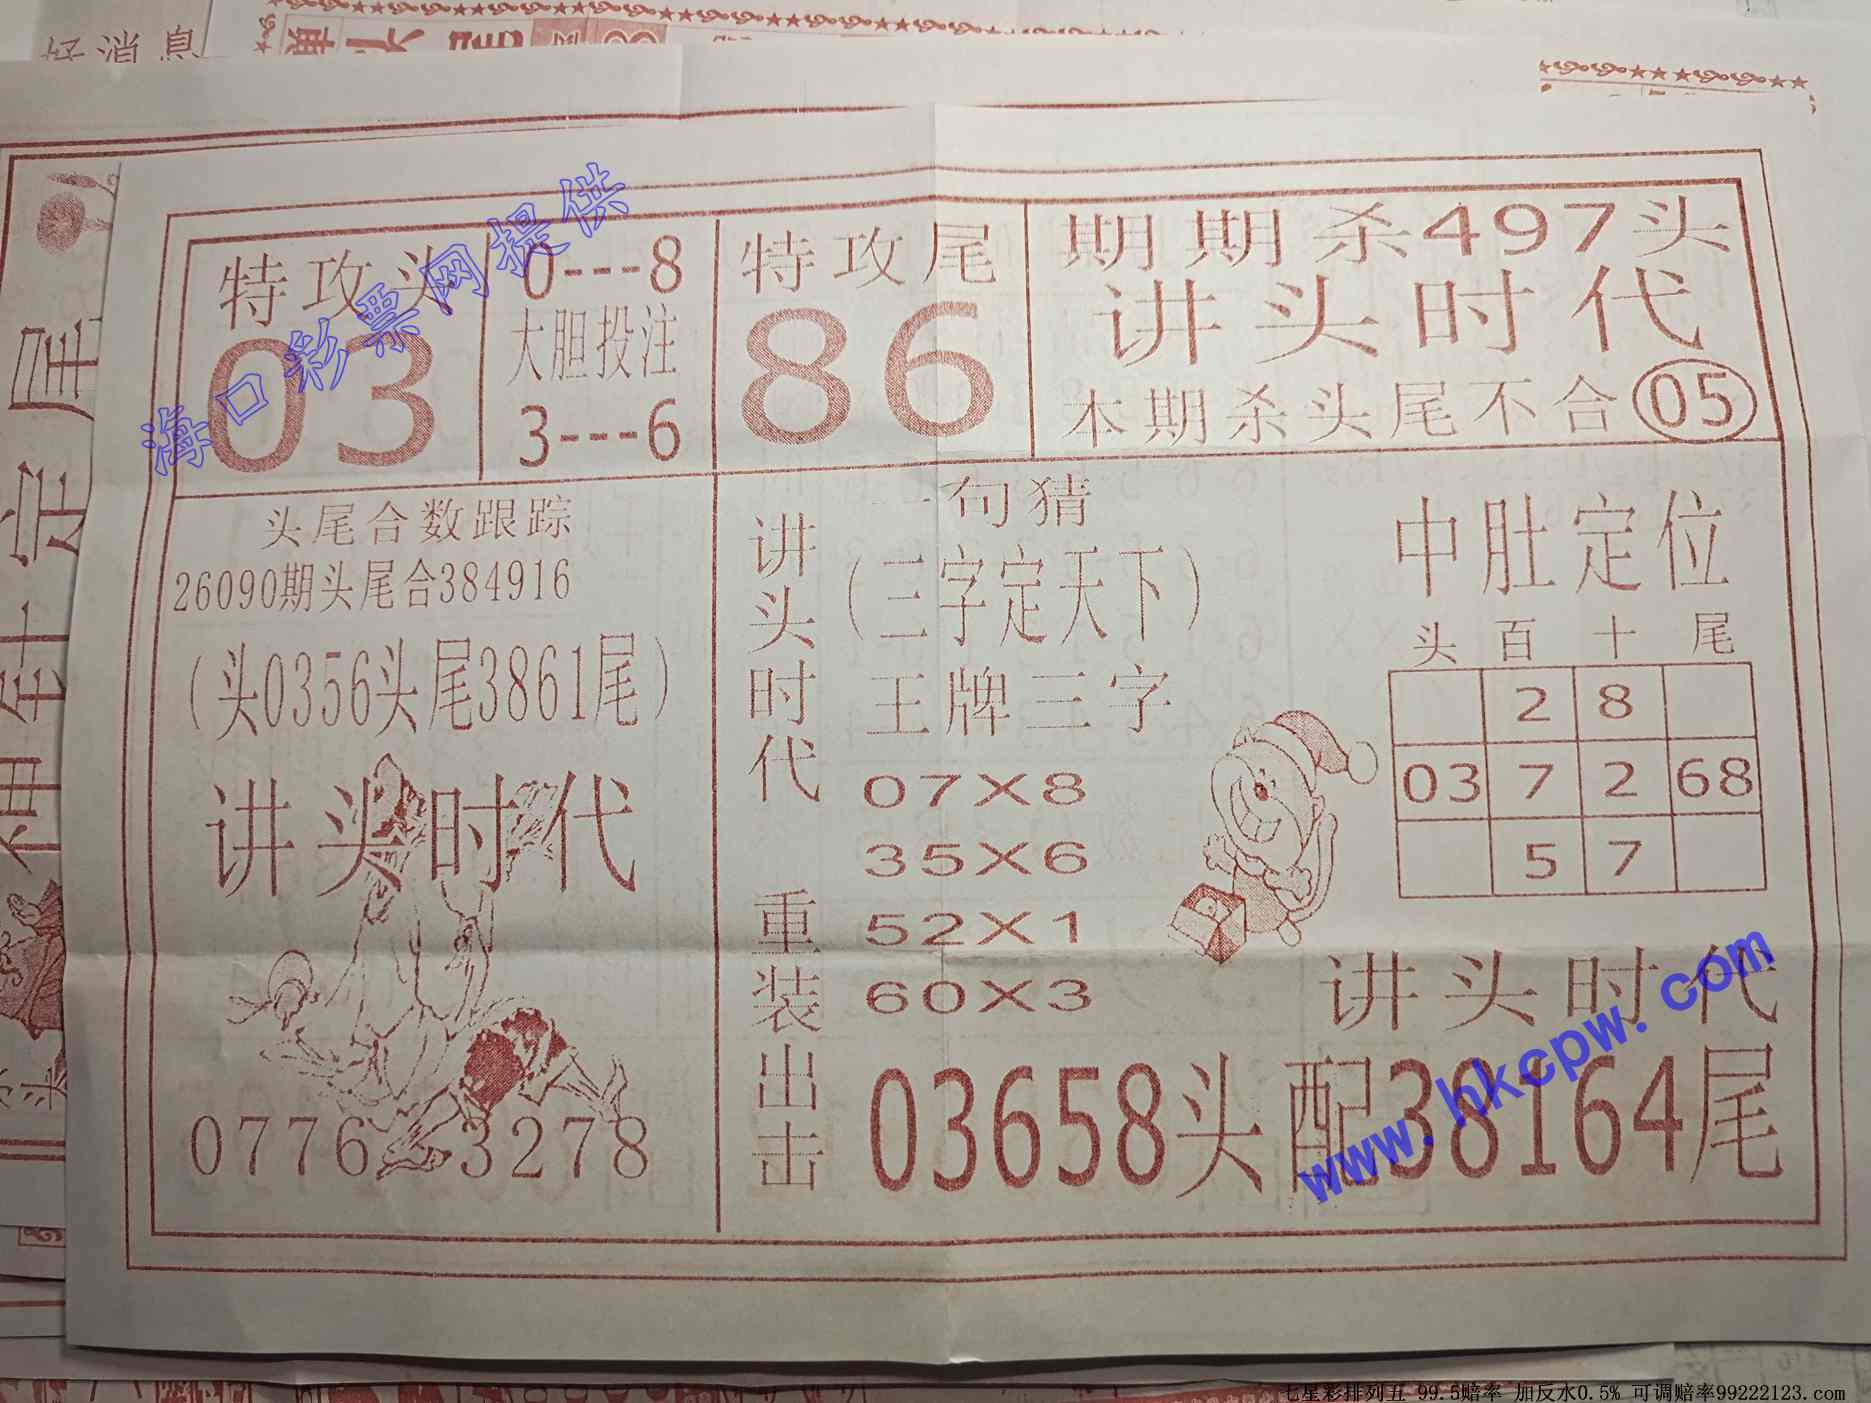 好消息
特攻头
03
0---8
大胆投注
3---6
特攻尾
86
期期杀497头
讲头时代
本期杀头尾不合05
头尾合数跟踪
26090期头尾合384916
(头0356头尾3861尾)
讲头时代
0776 3278
讲头时代
重装出击
一句猜
(三字定天下)
王牌三字
07X8
35X6
52X1
60X3
中肚定位
头 百 十 尾
2 8
03 7 2 68
5 7
讲头时代
03658头配38164尾
海口彩票网提供
www.hkcpw.com
七星彩排列五 99.5赔率 加反水0.5% 可调赔率99222123.com